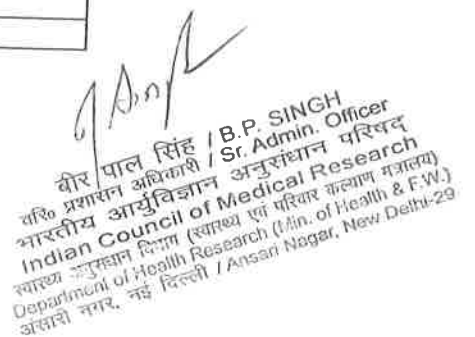 बीर पाल सिंह / B.P. SINGH
वरि० प्रशासन अधिकारी / Sr. Admin. Officer
भारतीय आयुर्विज्ञान अनुसंधान परिषद्
Indian Council of Medical Research
स्वास्थ्य अनुसंधान विभाग (स्वास्थ्य एवं परिवार कल्याण मंत्रालय)
Department of Health Research (Min. of Health & F.W.)
अंसारी नगर, नई दिल्ली / Ansari Nagar, New Delhi-29